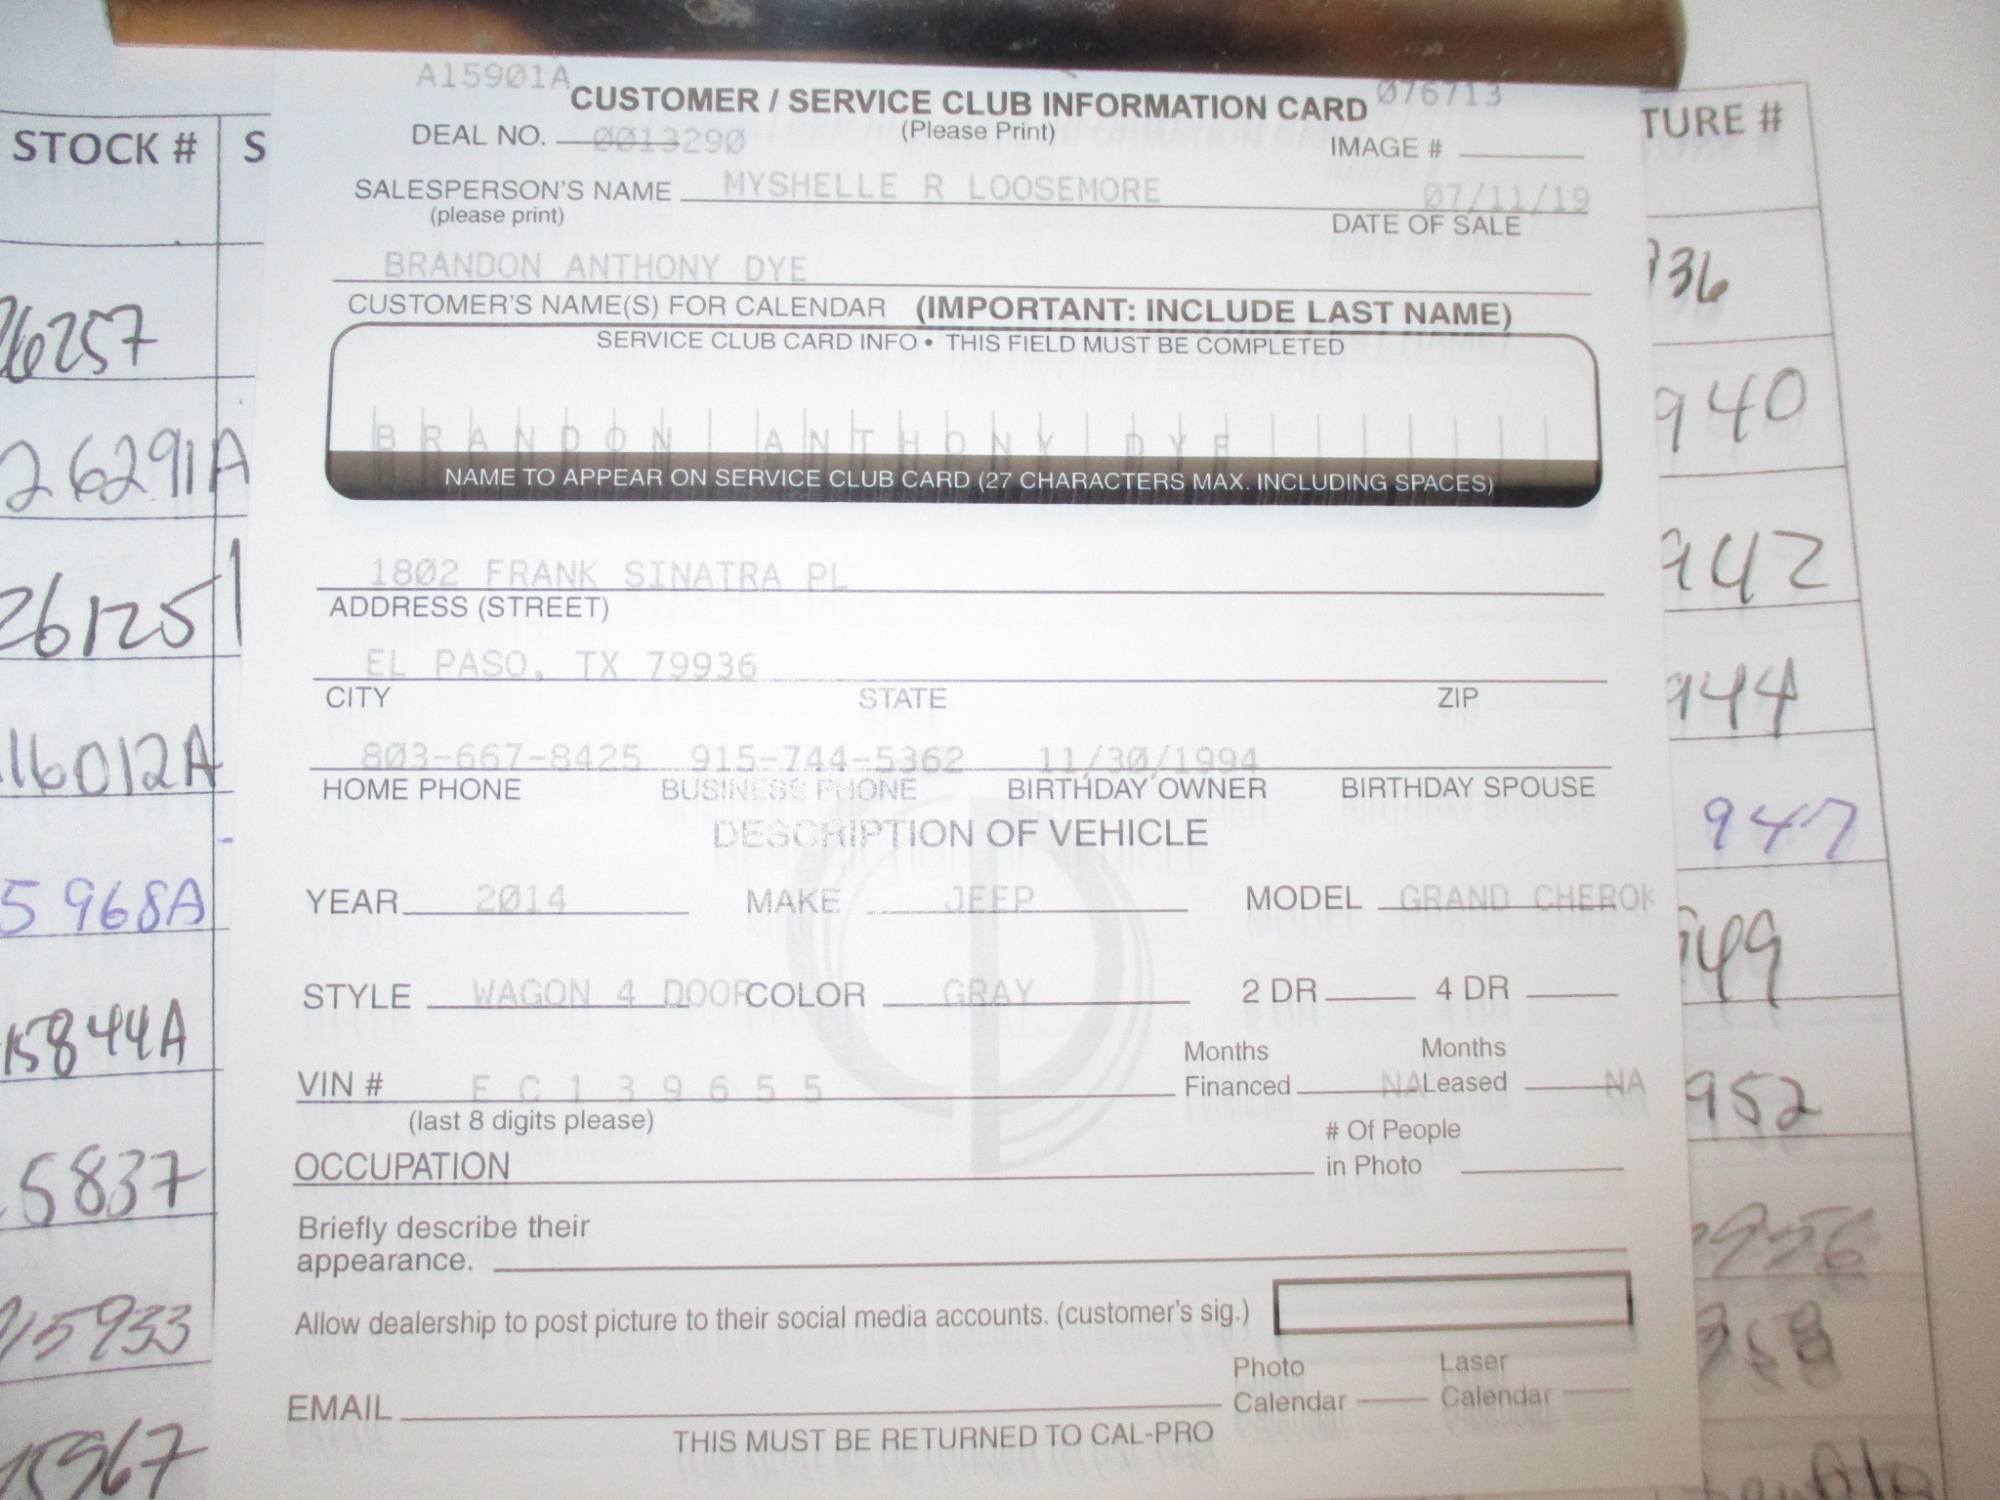 A15901A 076713
CUSTOMER / SERVICE CLUB INFORMATION CARD
(Please Print)
DEAL NO. 0013290 IMAGE #
SALESPERSON'S NAME MYSHELLE R LOOSEMORE 07/11/19
(please print) DATE OF SALE
BRANDON ANTHONY DYE
CUSTOMER'S NAME(S) FOR CALENDAR (IMPORTANT: INCLUDE LAST NAME)
SERVICE CLUB CARD INFO • THIS FIELD MUST BE COMPLETED
BRANDON ANTHONY DYE
NAME TO APPEAR ON SERVICE CLUB CARD (27 CHARACTERS MAX. INCLUDING SPACES)
1802 FRANK SINATRA PL
ADDRESS (STREET)
EL PASO, TX 79936
CITY STATE ZIP
803-667-8425 915-744-5362 11/30/1994
HOME PHONE BUSINESS PHONE BIRTHDAY OWNER BIRTHDAY SPOUSE
DESCRIPTION OF VEHICLE
YEAR 2014 MAKE JEEP MODEL GRAND CHEROK
STYLE WAGON 4 DOOR COLOR GRAY 2 DR 4 DR
Months Months
VIN # EC139655 Financed NA Leased NA
(last 8 digits please)
# Of People
OCCUPATION in Photo
Briefly describe their
appearance.
Allow dealership to post picture to their social media accounts. (customer's sig.)
Photo Laser
EMAIL Calendar Calendar
THIS MUST BE RETURNED TO CAL-PRO
STOCK # S
26257
26291A
26125
16012A
5968A
15844A
5837
15933
15967
TURE #
936
940
942
944
947
949
952
956
958